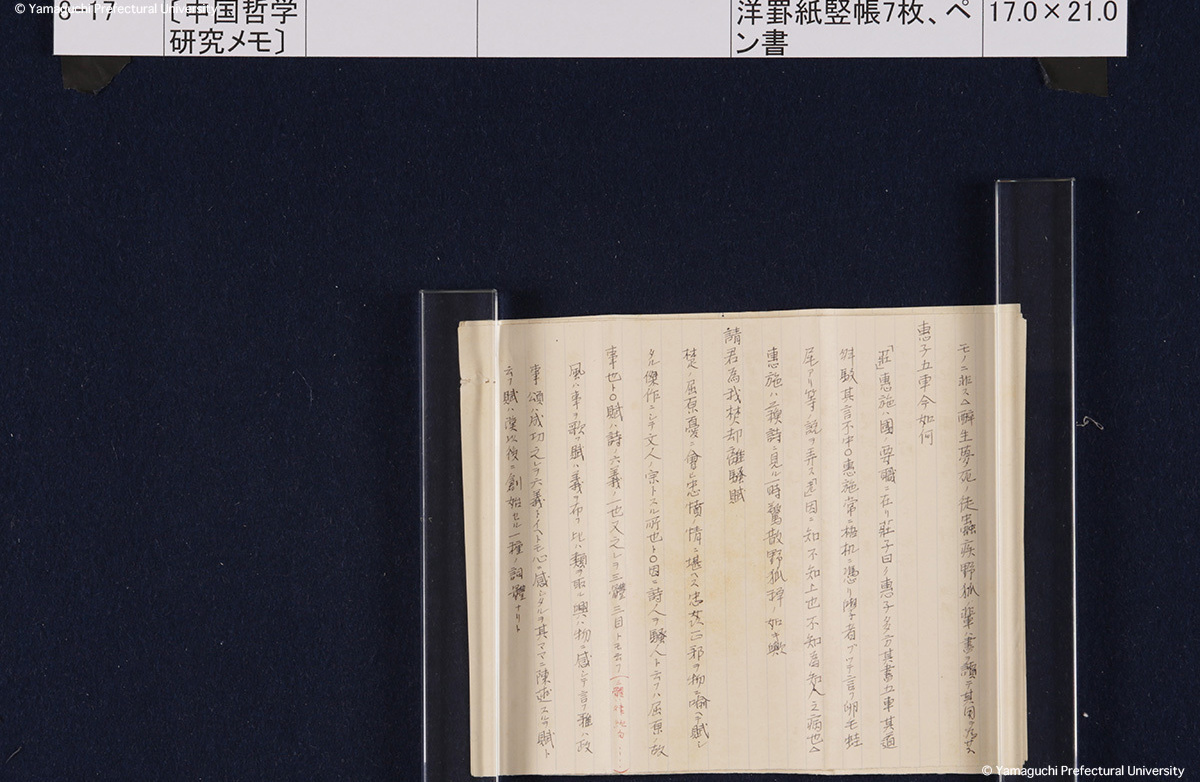 © Yamaguchi Prefectural University
8-17
〔中国哲学
研究メモ〕
洋罫紙竪帳7枚、ペ
ン書
17.0×21.0
モノニ非ス△酔生夢死ノ徒蟲疾野狐輩ハ書ヲ讀テ其
惠子五車今如何
「莊」惠施ハ國ノ要職ニ在リ莊子曰ク惠子多方其書五車其道
舛駁其言不中〇惠施常ニ梧机ニ憑リ學者 言フ卵毛蛙
尾アリ等ノ説ヲ弄ス 因ニ知不知上也不知為知人之病也△
惠施ハ 詩ニ見ル一時驚散野狐禅ノ如キ歟
請君為我焚却離騒賦
楚ノ屈原憂ニ會ヒ忠憤情ニ堪ヘス忠 邪ヲ物ニ喩ヘテ賦シ
タル傑作ニシテ文人ノ宗トスル所也ト〇因ニ詩ノ人ヲ騒人ト云フハ屈原ノ故
事也ト〇賦ハ詩ノ六義ノ一也又之レヲ三體三目トモ云フ
風ハ事ヲ歌フ賦ハ義ヲ布フ比ハ類ヲ取ル興ハ物ニ感シテ言フ雅ハ政
事頌ハ成功之レヲ六義ト イヘトモ心ニ感シタルヲ其ママニ陳述スルヲ賦ト
云フ賦ハ漢以後ニ創始セル一種ノ詞體ナリト
© Yamaguchi Prefectural University